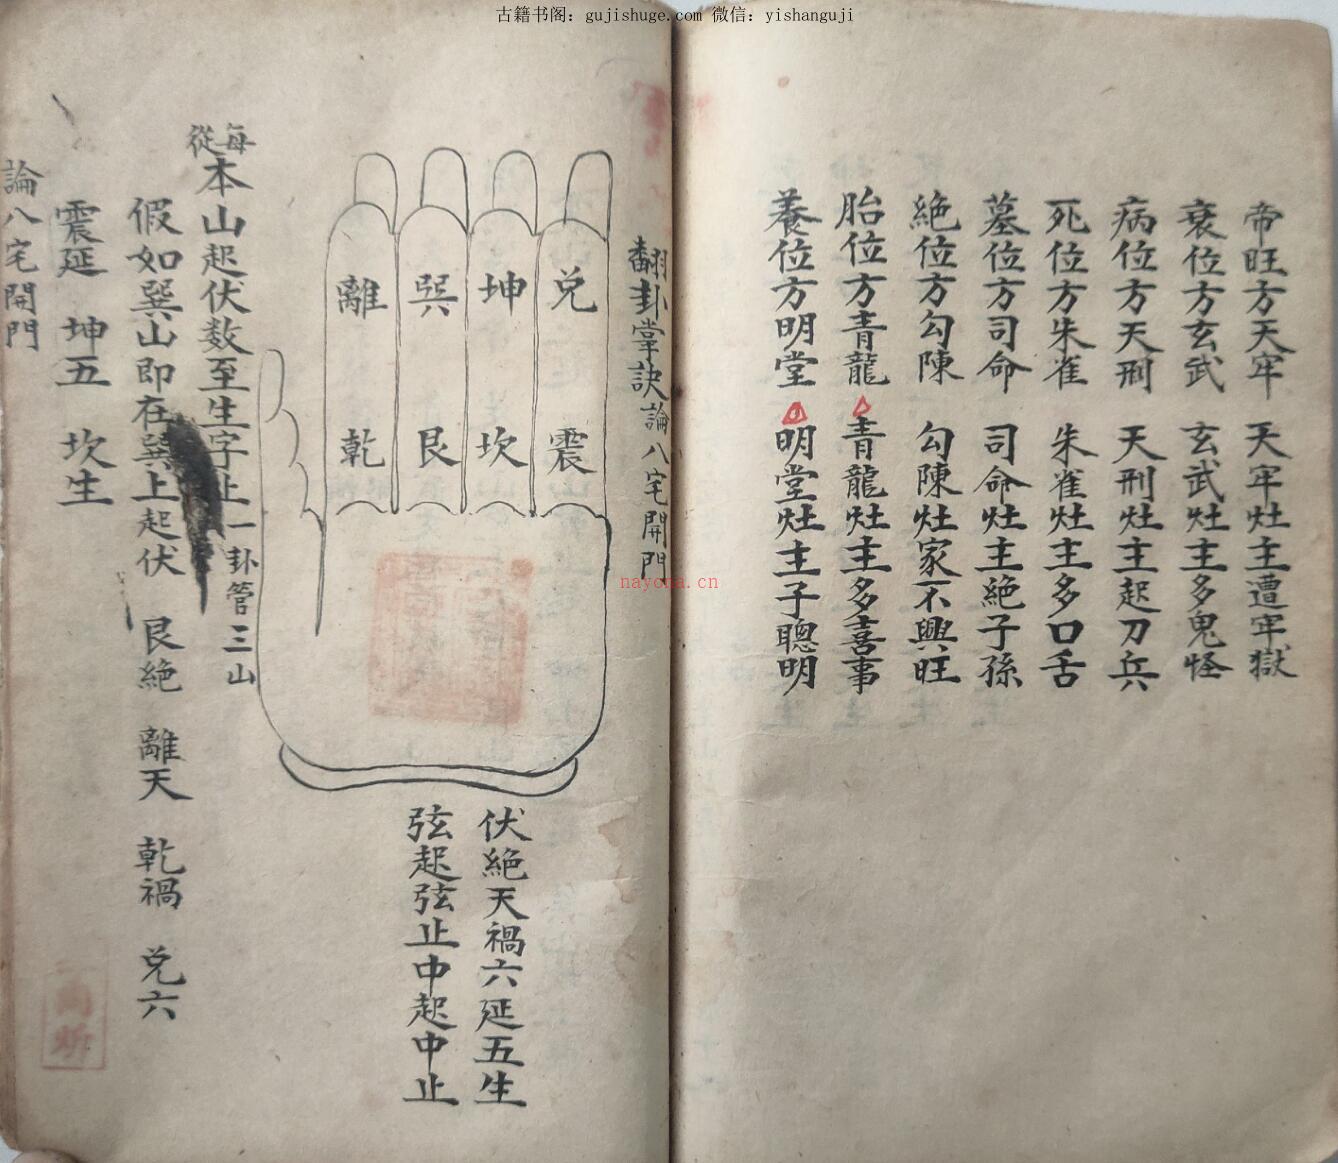 古籍书阁：gujishuge.com 微信：yishanguji
帝旺方天牢 天牢灶主遭牢獄
衰位方玄武 玄武灶主多鬼怪
病位方天刑 天刑灶主起刀兵
死位方朱雀 朱雀灶主多口舌
墓位方司命 司命灶主絶子孫
絶位方勾陳 勾陳灶家不興旺
胎位方青龍 青龍灶主多喜事
養位方明堂 明堂灶主子聰明
翻卦掌訣論八宅開門
兌 坤 巽 離
震 坎 艮 乾
伏絶天禍六延五生
弦起弦止中起中止
每從本山起伏数至生字止一卦管三山
假如巽山即在巽上起伏 艮絶 離天 乾禍 兌六
震延 坤五 坎生
論八宅開門
nayona.cn